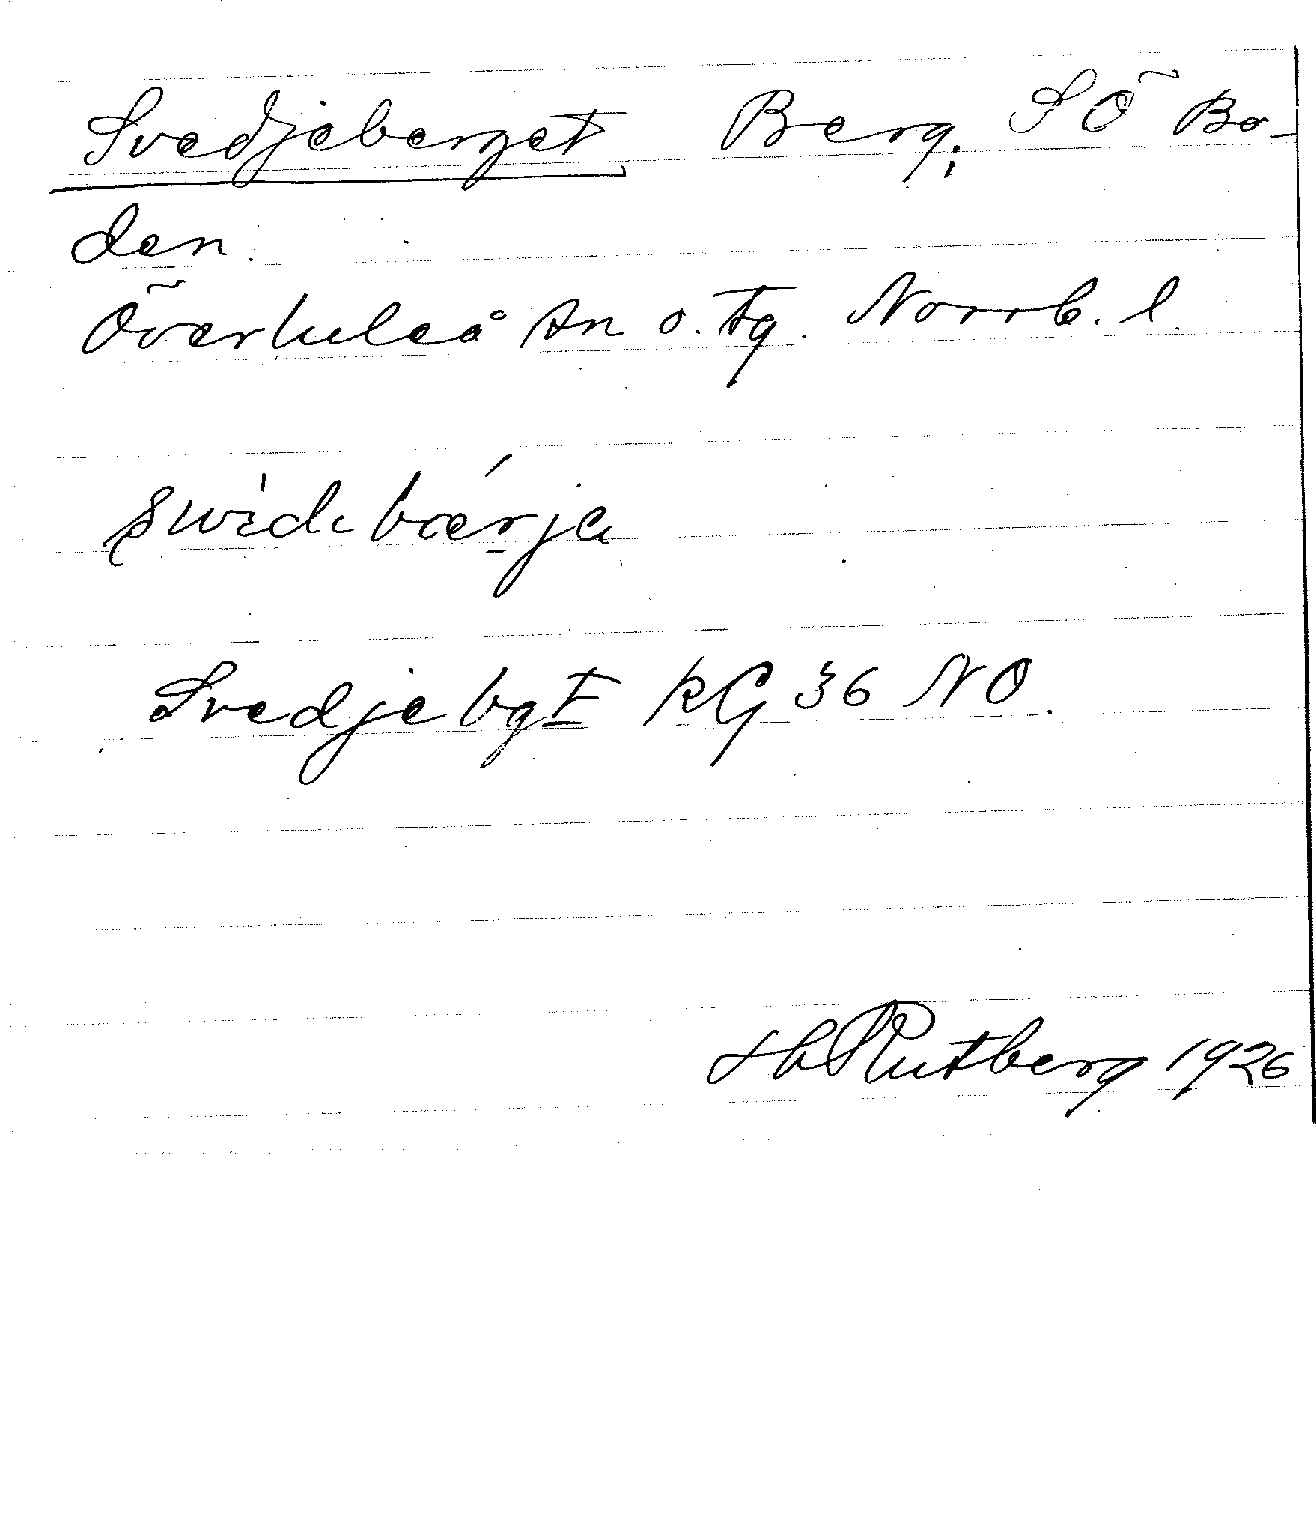 Svedjeberget Berg; SÖ Bo-
den.
Överluleå sn o. tg. Norrb. l.
Svedjebgt RG 36 NO.
Hb Rutberg 1926